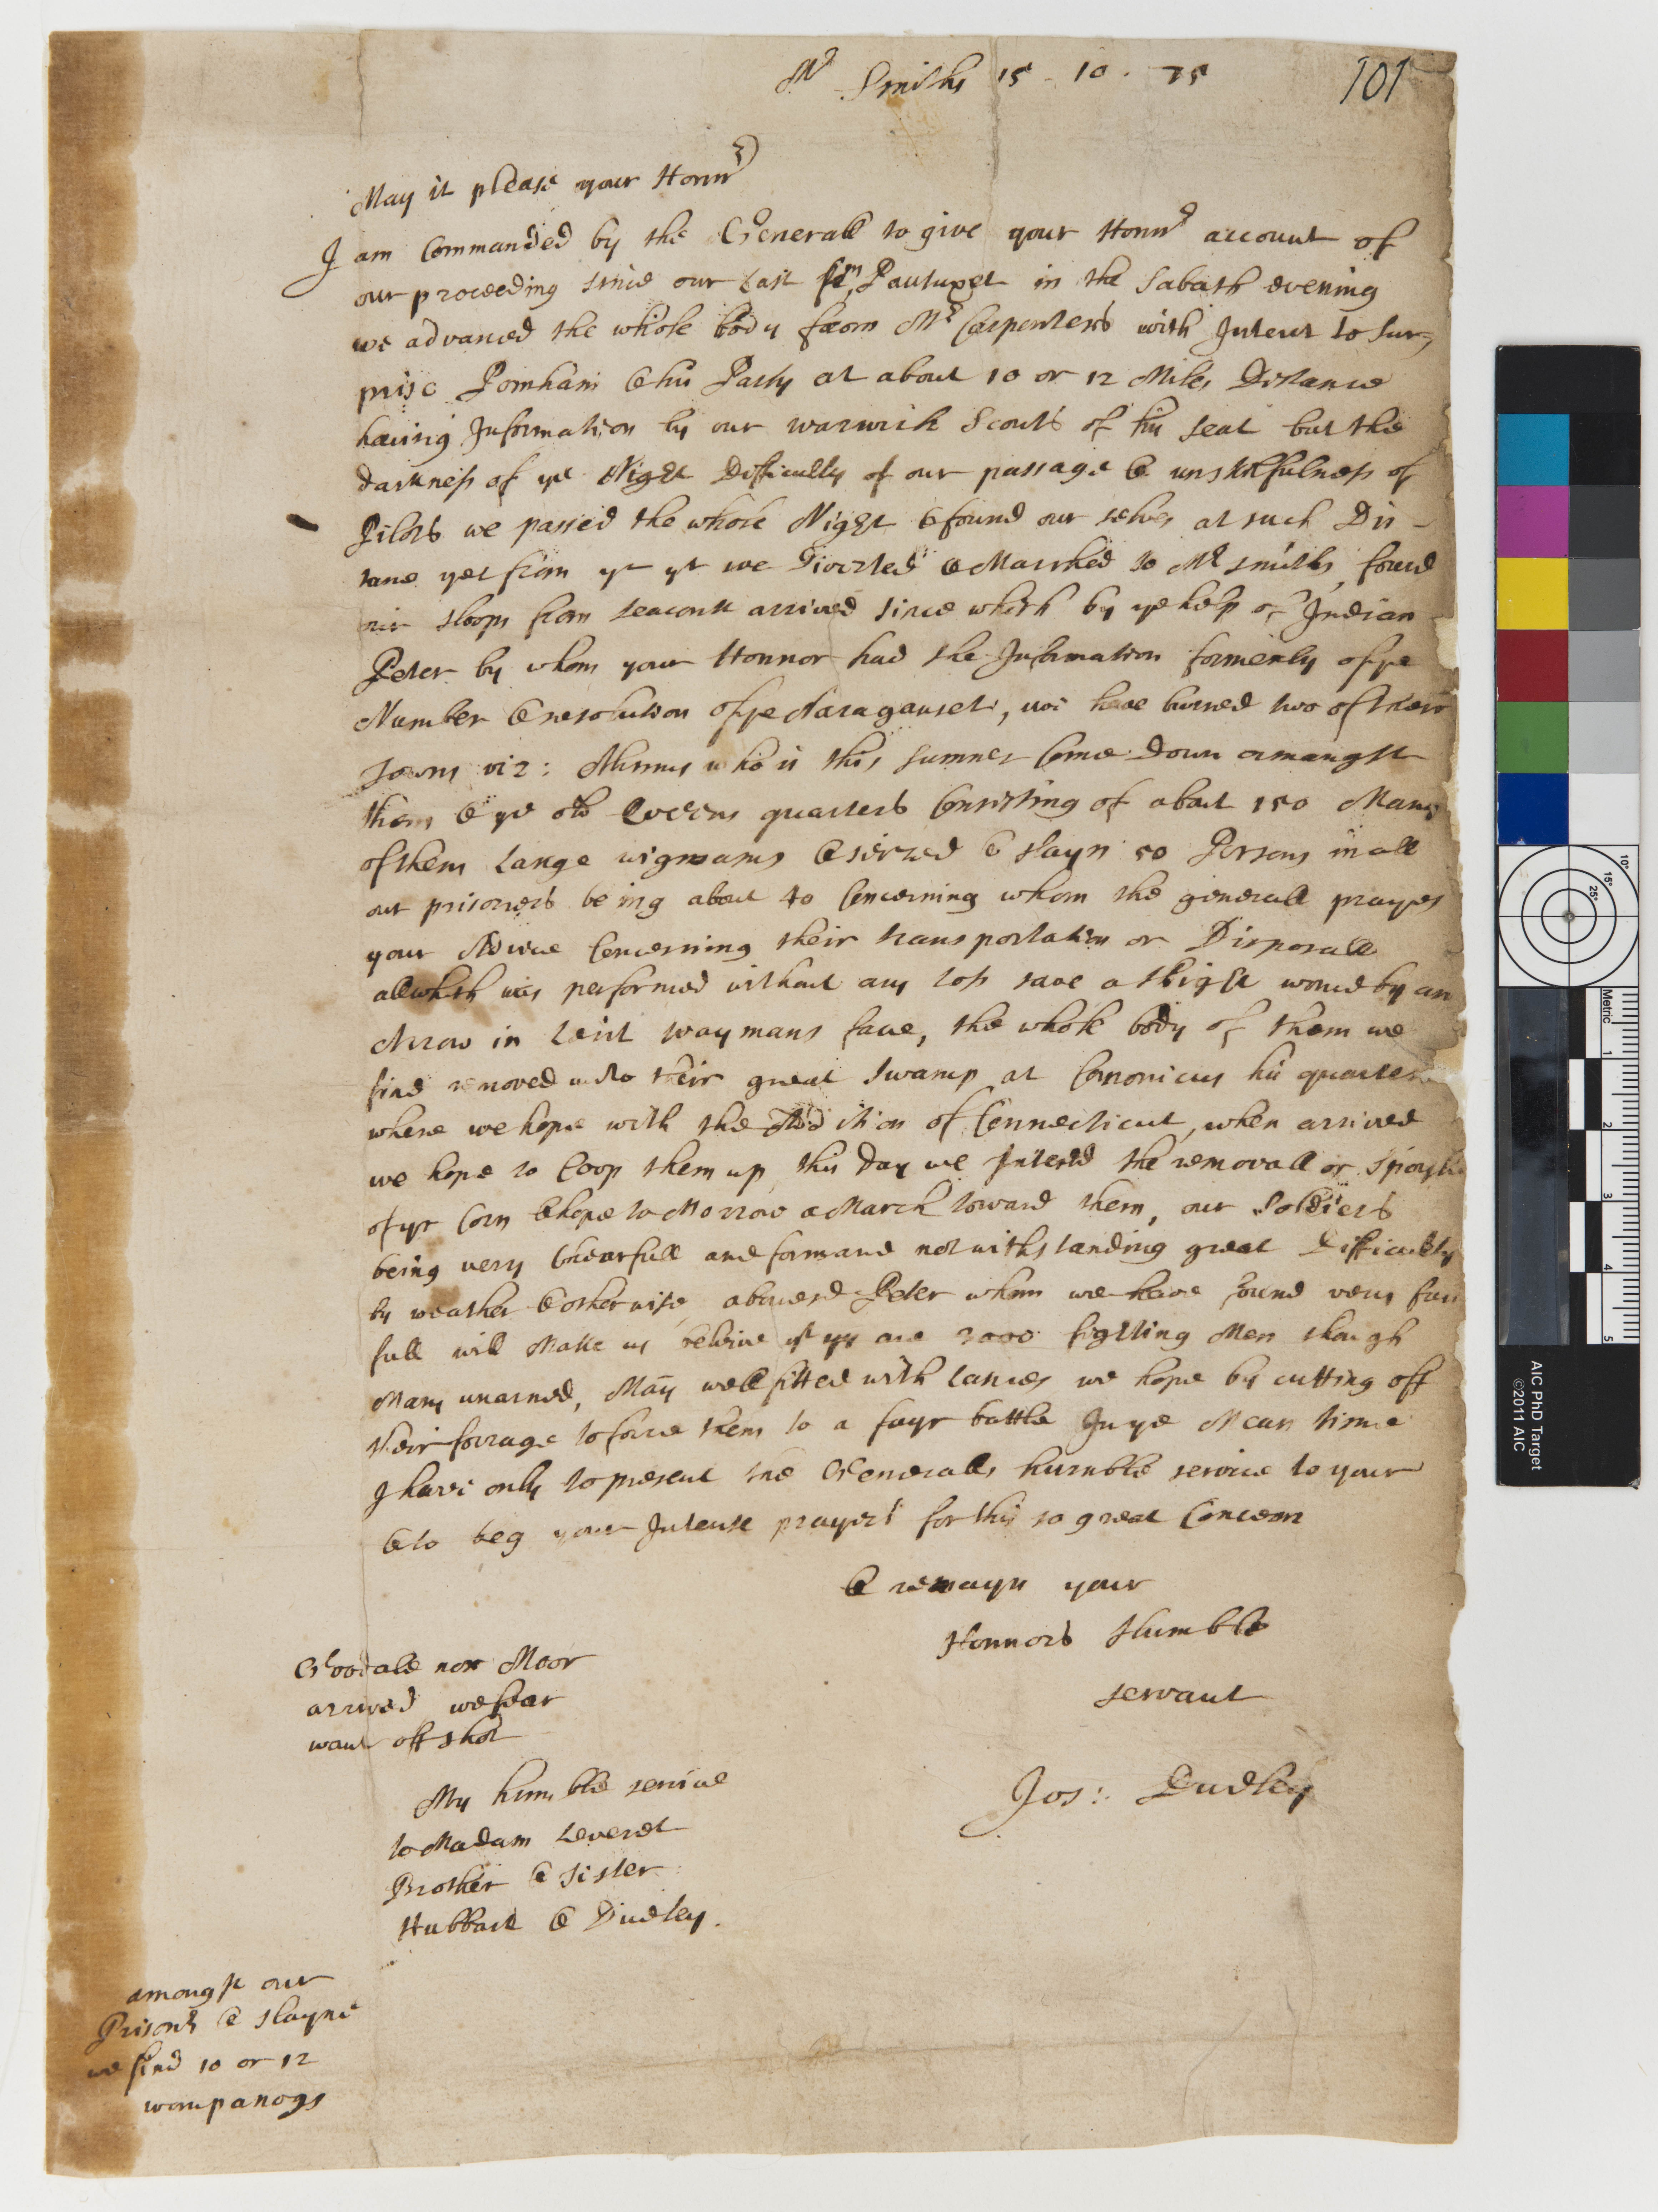 Mr Smiths 15 - 10 . 75
101
May it please your Honnr
I am Commanded by the Generall to give your Honnr account of
our proceeding since our last frm Pautuxet in the Sabath evening
we advanced the whole body from Mr Carpenters with Intent to Sur=
prise Pomham & his Party at about 10 or 12 Miles Distance
having Information by our warwick Scouts of his seat but the
darkness of ye Night Difficulty of our passage & unskilfulness of
Pilots we passed the whole Night & found our selves at such Dis-
tance yet from ym yt we Diverted & Marched to Mr Smiths, found
our sloops from Seaconk arrived since which by ye help of Indian
Peter by whom your Honnor had the Information formerly of ye
Number & resolution of ye Naraganset, we have burned two of their
Towns viz: Ahmus who is this summer Come down amongst
them & ye old Queens quarters Consisting of about 150 Many
of them Large wigwams & seized & slayn 50 Persons in all
our prisoners being about 40 Concerning whom the generall prayes
your Advice Concerning their transportation or Disposall
all which was performed without any loss save a slight wound by an
Arrow in Leiut waymans face, the whole body of them we
find removed into their great swamp at Canonicus his quarters
where we hope with the Addition of Connecticut, when arrived
we hope to Coop them up, this day we Intend the removall or spoyle
of yr Corn & hope to Morrow a March toward them, our Soldiers
being very Chearfull and forward notwithstanding great Difficulty
by weather & otherwise, abovesd Peter whom we have found very faith
full will Make us believe yt yy are 3000 fighting Men though
Many unarmed, Many well fitted with lances we hope by cutting off
their forrage to force them to a fayr battle In ye Mean time
I have only to present the Generalls humble service to your
& to beg your Intense prayers for this so great Concern
& remayn your
Honnors Humble
servant
Jos: Dudley
Goodale nor Moor
arrived we fear
want off shot
My humble service
to Madam Leveret
Brother & Sister
Hubbard & Dudley.
amongst our
Prisonrs & Slayne
we find 10 or 12
wampanogs
Metric
1
2
3
4
5
10°
15°
25°
AIC PhD Target
©2011 AIC